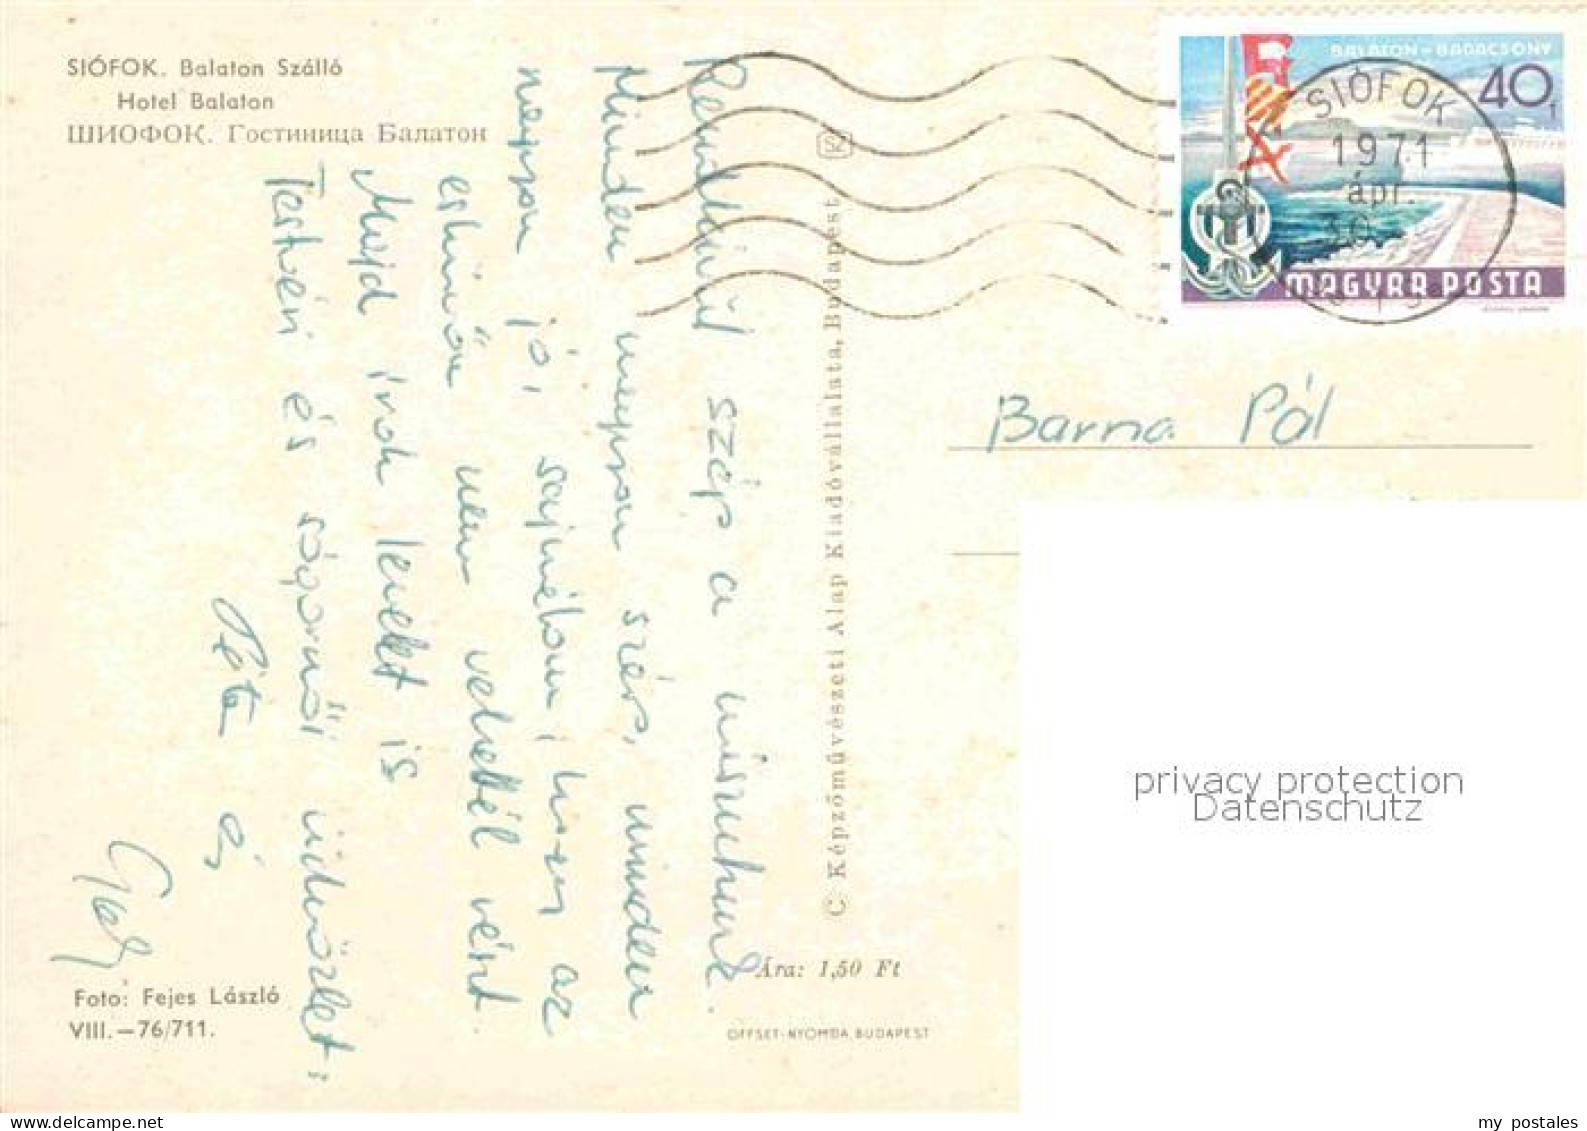 SIÓFOK. Balaton Szálló
Hotel Balaton
ШИОФОК. Гостиница Балатон
Rendkívül szép a
Minden nagyon szép, minden
nagyon jó, sajnálom, hogy az
nem vehettél részt.
Majd írok levelet is
Testvéri és sógornői üdvözlet:
Foto: Fejes László
VIII.–76/711.
SZ
© Képzőművészeti Alap Kiadóvállalata, Budapest
Ára: 1,50 Ft
OFFSET-NYOMDA, BUDAPEST
BALATON–BADACSONY
40f
MAGYAR POSTA
SIÓFOK
1971
ápr.
30
Barna Pál
privacy protection
Datenschutz
my postales